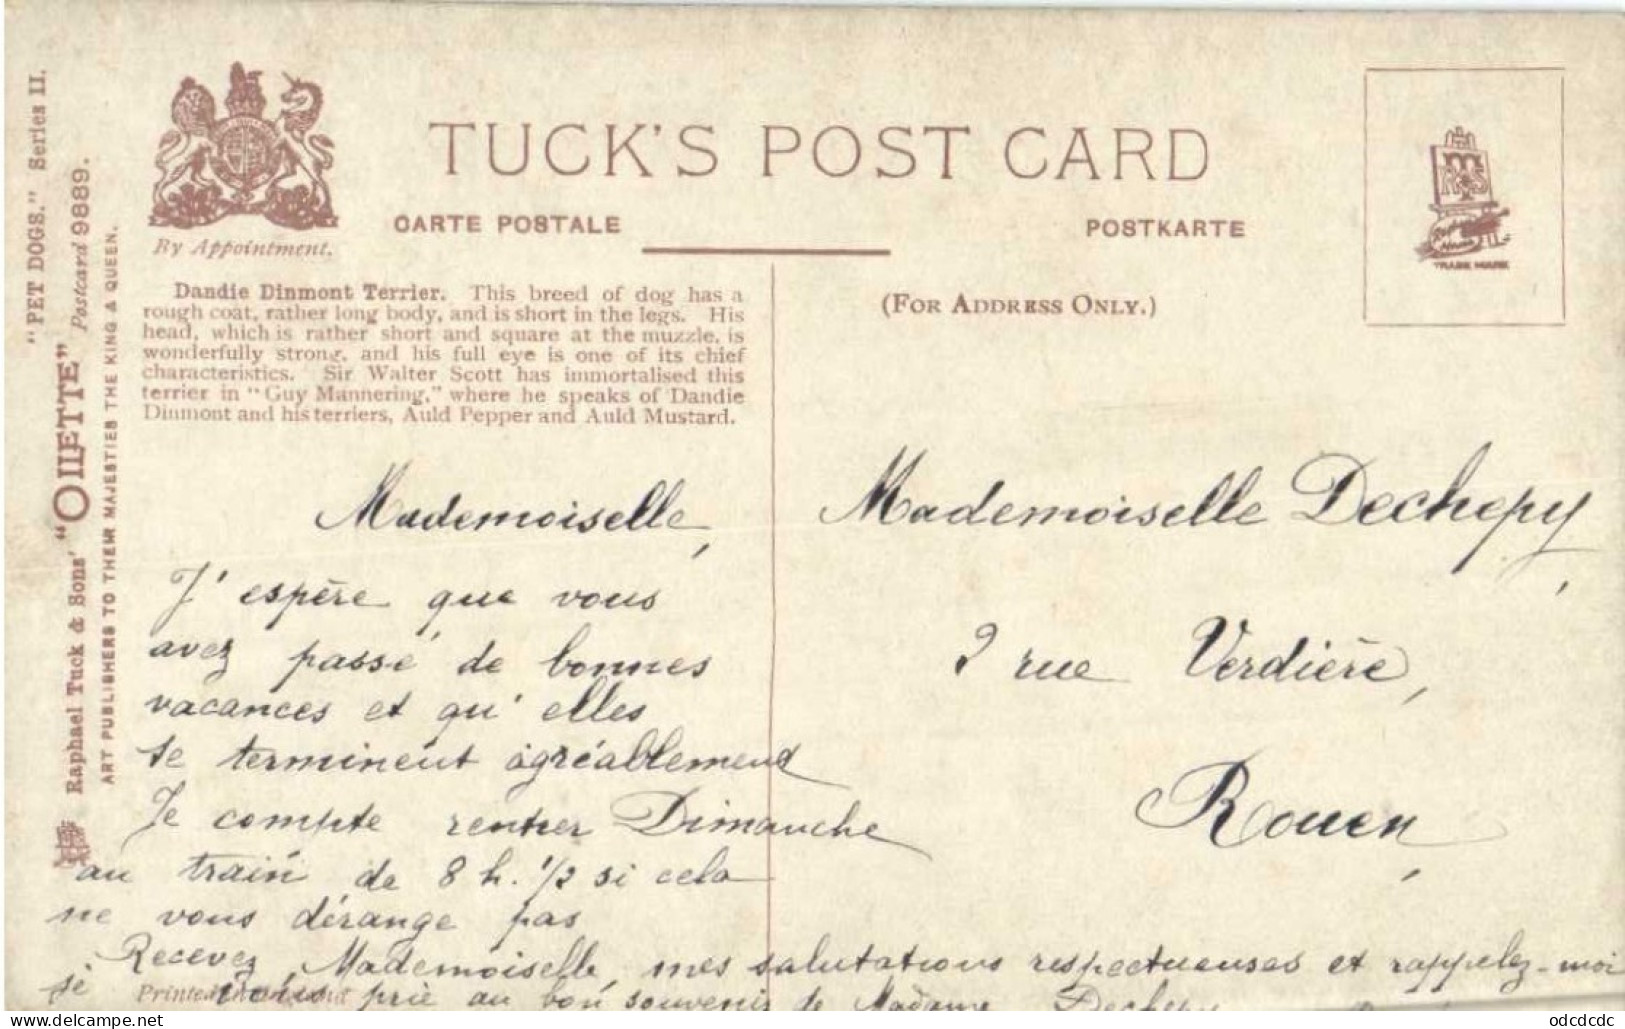 "PET DOGS." Series II.
Raphael Tuck & Sons' "OILETTE" Postcard 9889.
ART PUBLISHERS TO THEIR MAJESTIES THE KING & QUEEN.
By Appointment.
TUCK'S POST CARD
CARTE POSTALE
POSTKARTE
TRADE MARK
(FOR ADDRESS ONLY.)
Dandie Dinmont Terrier. This breed of dog has a
rough coat, rather long body, and is short in the legs. His
head, which is rather short and square at the muzzle, is
wonderfully strong, and his full eye is one of its chief
characteristics. Sir Walter Scott has immortalised this
terrier in "Guy Mannering," where he speaks of Dandie
Dinmont and his terriers, Auld Pepper and Auld Mustard.
Mademoiselle,
J'espère que vous
avez passé de bonnes
vacances et qu'elles
se terminent agréablement
Je compte rentrer Dimanche
au train de 8 h. 1/2 si cela
ne vous dérange pas
Recevez, Mademoiselle, mes salutations respectueuses et rappelez-moi
je vous prie au bon souvenir de Madame Dechepy
Printed in
Mademoiselle Dechepy,
2 rue Verdière,
Rouen,
odcdcdc